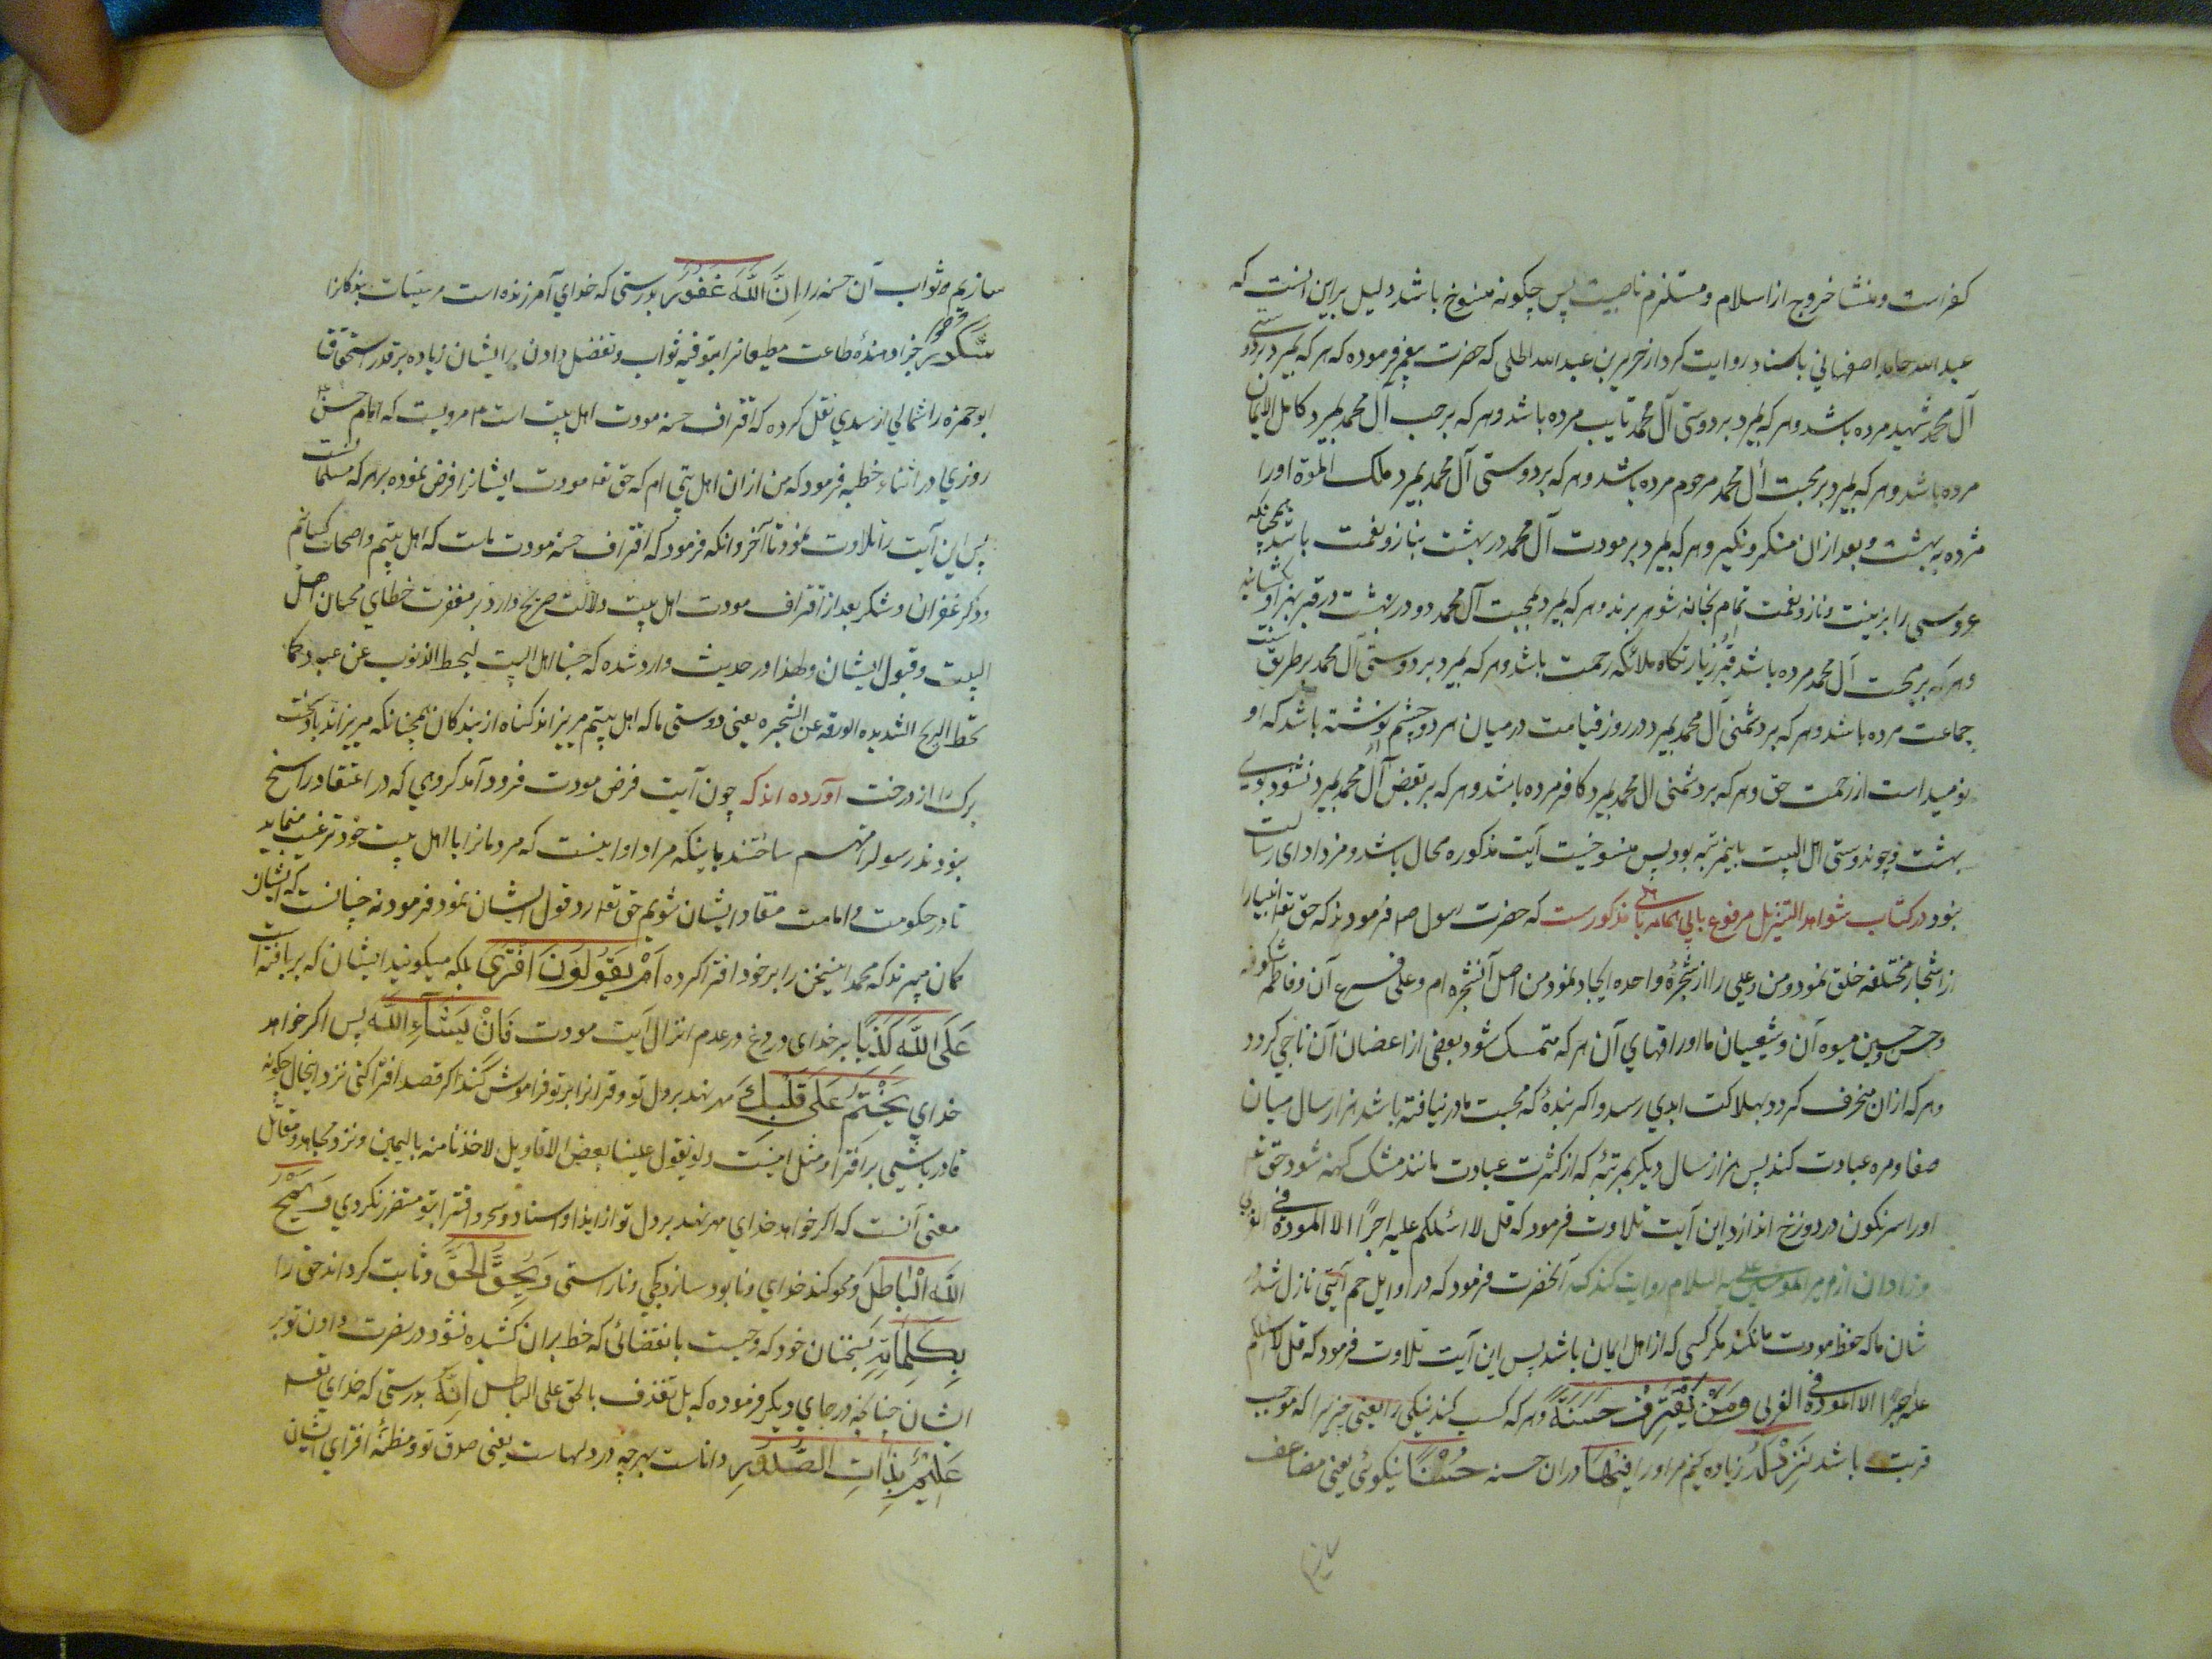 کفراست ومنشا خروج از اسلام ومستلزم ناصبیت پس چکونه منسوخ باشد دلیل براین انست که
عبد الله حامد اصفهانی باسناد روایت کرد از جریر بن عبد الله البجلی که حضرت پیغمبر فرموده که هر که بمیرد بر دوستی
آل محمد شهید مرده باشد وهر که بمیرد بر دوستی آل محمد تایب مرده باشد وهر که بر حب آل محمد بمیرد کامل الایمان
مرده باشد وهر که بمیرد بر محبت آل محمد مرحوم مرده باشد وهر که بر دوستی آل محمد بمیرد ملک الموت اورا
مژده به بهشت وبعد ازان منکر ونکیر وهر که بمیرد بر مودت آل محمد در بهشت بناز ونعمت باشد همچنانکه
عروسی را بزینت وناز ونعمت تمام بخانه شوهر برند وهر که بمیرد بمحبت آل محمد دو در بهشت در قبر بهر او بکشایند
وهر که بر محبت آل محمد مرده باشد قبر او زیارتکاه ملائکه رحمت باشد وهر که بمیرد بر دوستی آل محمد بر طریق سنت
جماعت مرده باشد وهر که بر دشمنی آل محمد بمیرد در روز قیامت در میان هر دو چشم او نوشته باشد که او
نومید است از رحمت حق وهر که بر دشمنی ال محمد بمیرد کافر مرده باشد وهر که بر بغض آل محمد بمیرد نشنود بوی
بهشت وچون دوستی اهل البیت باینمرتبه بود پس منسوخیت آیت مذکوره محال باشد ومزد ادای رسالت
بود در کتاب شواهد التنزیل مرفوع بابی امامه باهلی مذکورست که حضرت رسول ص فرمودند که حق تعه انبیارا
از اشجار مختلفه خلق نمود ومن وعلی را از شجرهٔ واحده ایجاد نمود من اصل آنشجره ام وعلی فرع آن وفاطمه شکوفه
وحسن وحسین میوه آن وشیعیان ما اوراقهای آن هر که متمسک شود ببعضی از اغصان آن ناجی کردد
وهر که ازان منحرف کردد بهلاکت ابدی رسد واکر بندهٔ که محبت ما در نیافته باشد هزار سال میان
صفا ومروه عبادت کند پس هزار سال دیکر بمرتبهٔ که از کثرت عبادت مانند مشک کهنه شود حق تعه
اورا سرنکون در دوزخ اندازد این آیت تلاوت فرمود که قل لا اسئلکم علیه اجرًا الا المودة فی القربی
وزادان از امیر المومنین علیه السلام روایت کند که آنحضرت فرمود که در اوایل حم آیتی نازل شد در
شان ما که حفظ مودت ما نکند مکر کسی که از اهل ایمان باشد پس این آیت تلاوت فرمود که قل لا اسئلکم
علیه اجرًا الا المودة فی القربی وَمَنْ یَقْتَرِفْ حَسَنَةً وهر که کسب کند نیکی را یعنی چیزیرا که موجب
قربت باشد نَزِدْ لَهُ زیاده کنیم مر اورا فِیْهَا دران حسنه حُسْنًا نیکوئی یعنی مضاعف
سازیم
سازیم ثواب آن حسنه را اِنَّ اللّٰهَ غَفُوْرٌ بدرستی که خدای آمرزنده است مر سیئات بندکانرا
شَکُوْرٌ جزا دهندهٔ طاعت مطیعانرا بتوفیه ثواب وتفضل دادن بر ایشان زیاده بر قدر استحقاق
ابو حمزه ثمالی از سدی نقل کرده که اقتراف حسنه مودت اهل بیت است مرویست که امام حسن
روزی در اثناء خطبه فرمود که من ازان اهل بیتی ام که حق تعه مودت ایشانرا فرض نموده بر هر که مسلمانست
پس این آیت را تلاوت نمود تا آخر وانکه فرمود که اقتراف حسنه مودت ماست که اهل بیتیم واصحاب کسائیم
وذکر غفران وشکر بعد از اقتراف مودت اهل بیت دلالت صریح دارد بر مغفرت خطای محبان اهل
البیت وقبول ایشان ولهذا در حدیث وارد شده که حبنا اهل البیت لیحط الذنوب عن عبد کما
تحط الریح الشدیده الورقه عن الشجره یعنی دوستی ما که اهل بیتیم میریزاند کناه از بندکان همچنانکه میریزاند باد سخت
برک را از درخت آورده اند که چون آیت فرض مودت فرود آمد کروهی که در اعتقاد راسخ
نبودند رسول را متهم ساختند باینکه مراد او اینست که مردمانرا با اهل بیت خود ترغیب مینماید
تا در حکومت وامامت منقاد ایشان شویم حق تعه رد قول ایشان نمود فرمود نه چنانست که ایشان
کمان میبرند که محمد اینسخن را بر خود افترا کرده اَمْ یَقُوْلُوْنَ افْتَرٰی بلکه میکویند ایشان که بر بافته است
عَلَی اللّٰهِ کَذِبًا بر خدای دروغ در عدم انزال آیت مودت فَاِنْ یَشَآءِ اللّٰهُ پس اکر خواهد
خدای یَخْتِمْ عَلٰی قَلْبِکَ مهر نهد بر دل تو وقرانرا بر تو فراموش کند اکر قصد افترا کنی نزد اینحال چکونه
قادر باشی بر افترا ومثل اینست ولو تقول علینا بعض الاقاویل لاخذنا منه بالیمین ونزد مجاهد ومقاتل
معنی آنست که اکر خواهد خدای مهر نهد بر دل تو از ایذا واسناد وسحر وافترا بتو متضرر نکردی وَیَمْحُ
اللّٰهُ الْبَاطِلَ ومحو کند خدای ونابود سازد کجی وناراستی وَیُحِقُّ الْحَقَّ وثابت کرداند حق را
بِکَلِمَاتِهِ بسخنان خود که وحیست بانقضائی که خط بران کشیده نشود در نصرت دادن تو بر
ایشان چنانچه در جای دیکر فرموده که بل نقذف بالحق علی الباطل اِنَّهُ بدرستی که خدای تعه
عَلِیْمٌ بِذَاتِ الصُّدُوْرِ داناست بهر چه در دلهاست یعنی صدق تو ومظنهٔ افترای ایشان